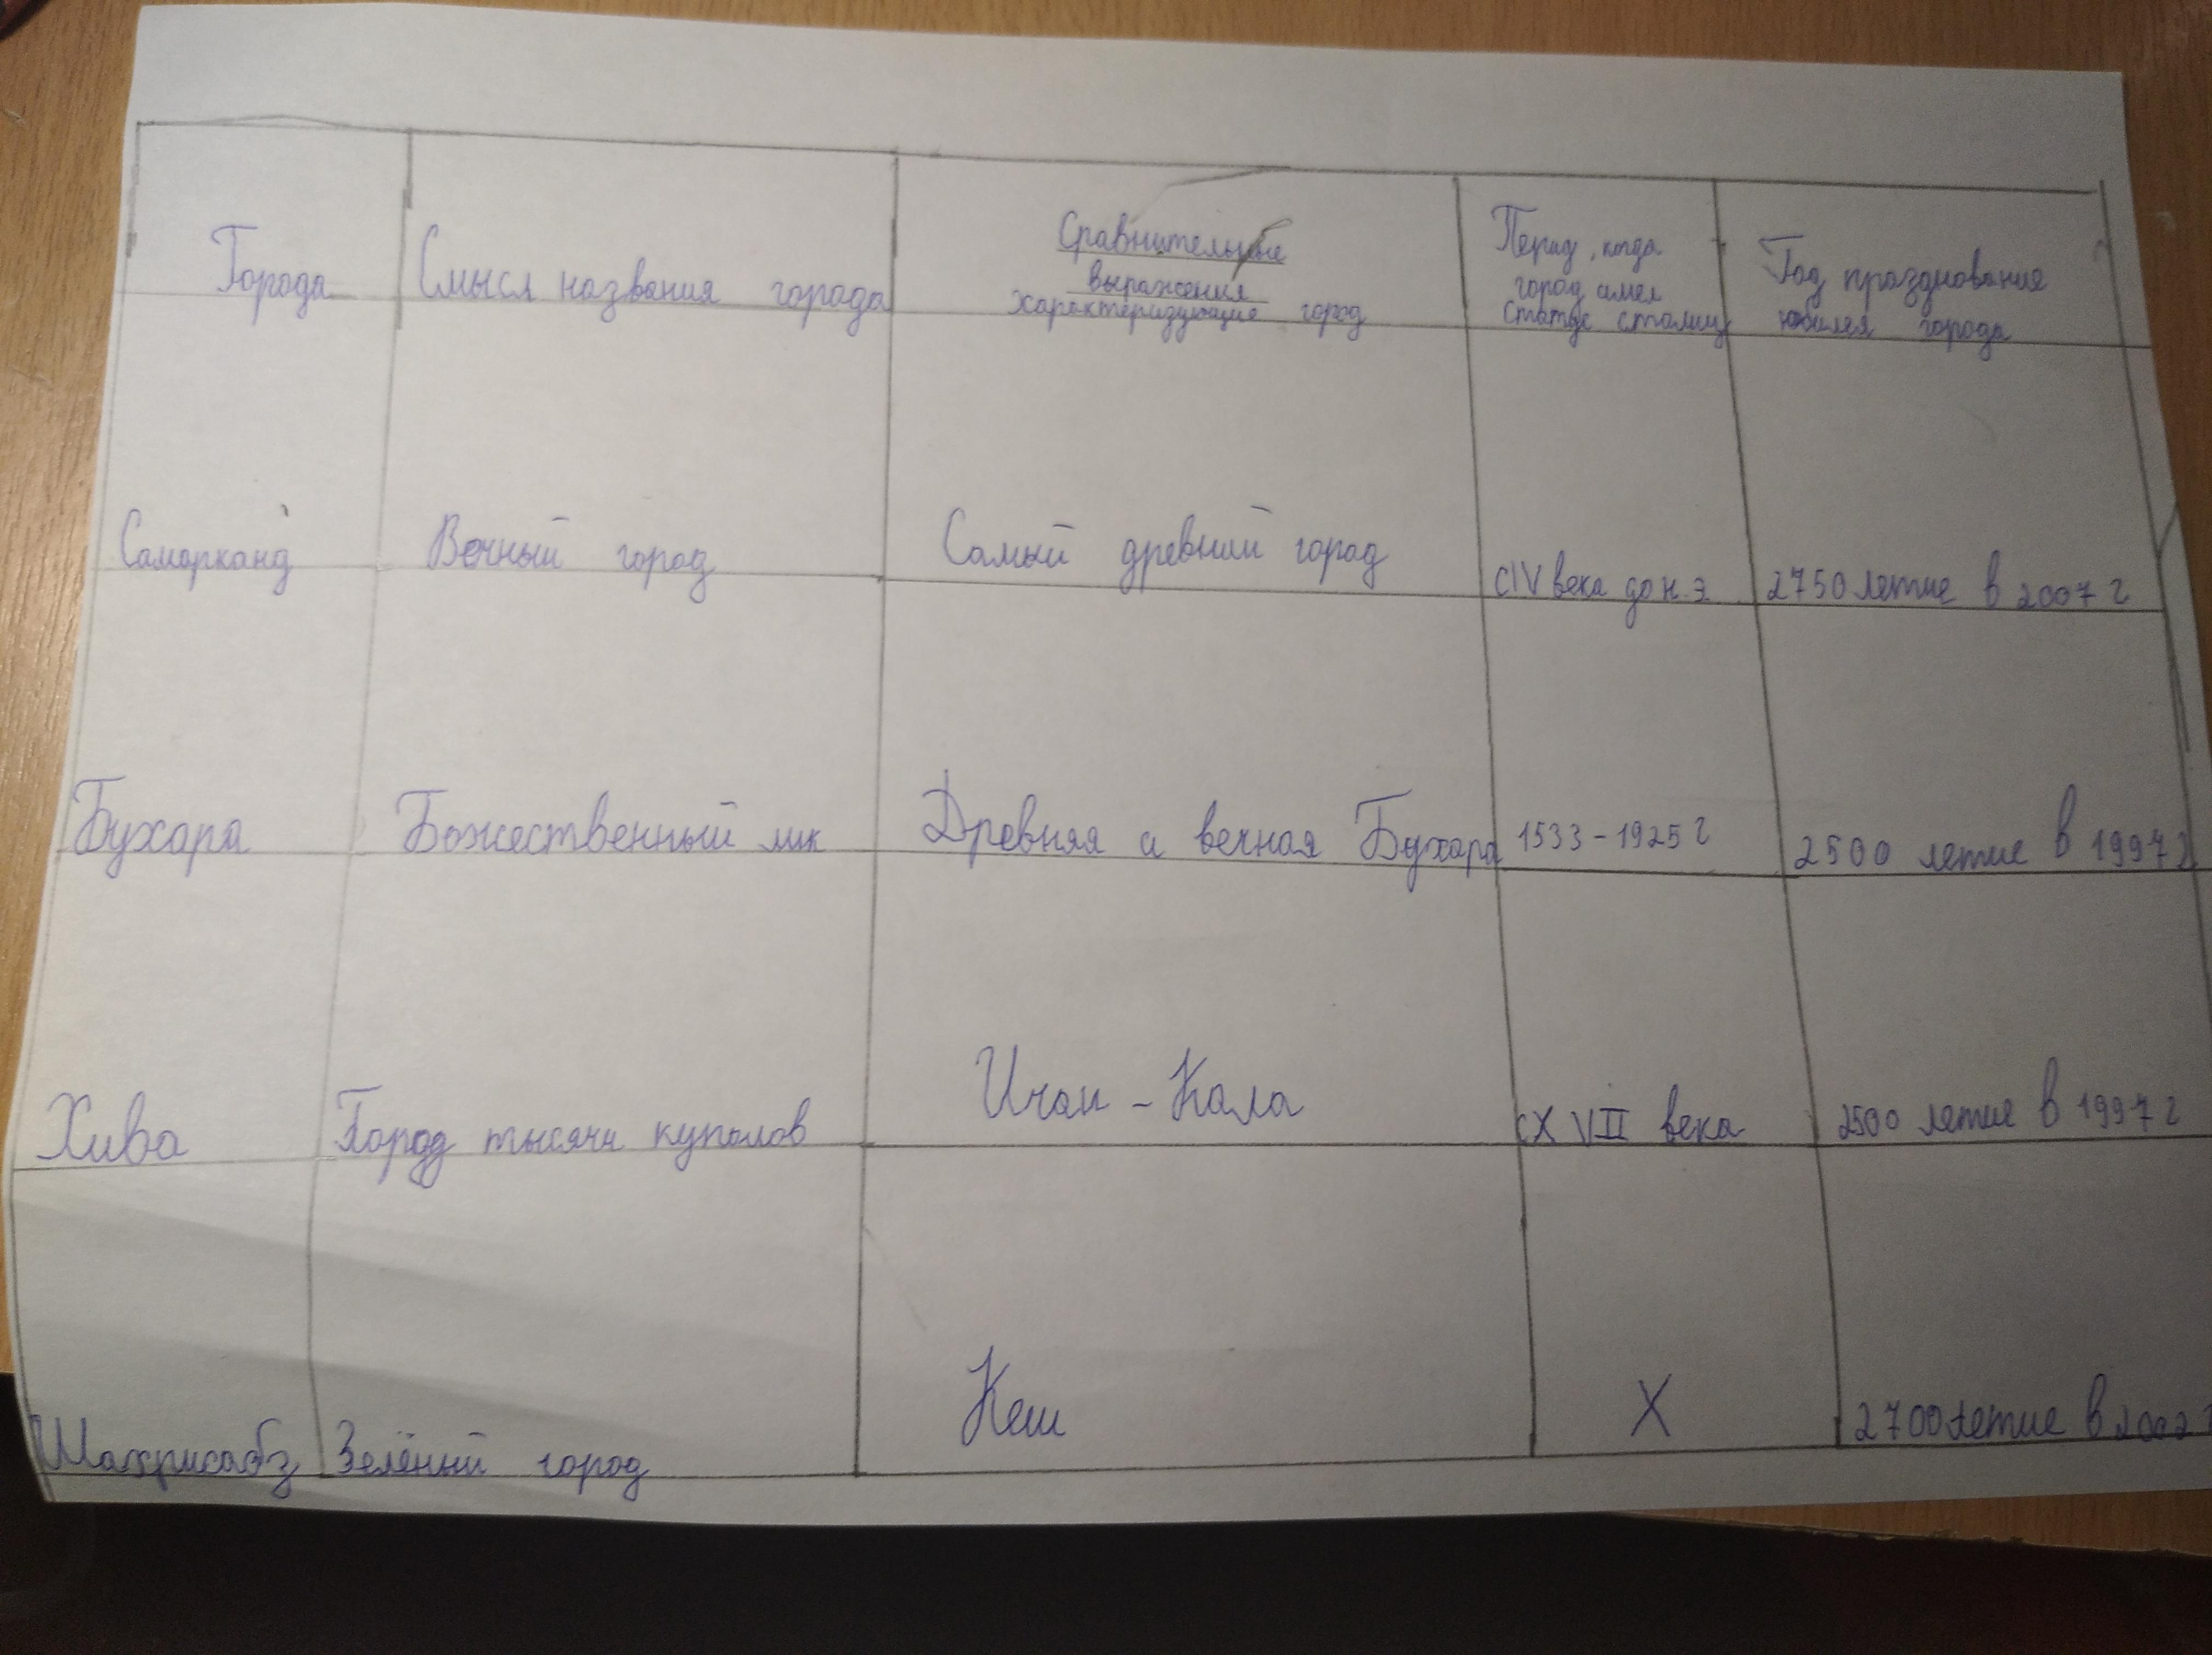 Города
Смысл названия города
Сравнительные
выражения
характеризующие город
Период, когда
город имел
статус столиц
Год празднования
юбилея города
Самарканд
Вечный город
Самый древний город
с IV века до н.э
2750 летие в 2007 г
Бухара
Божественный лик
Древняя и вечная Бухара
1533-1925 г
2500 летие в 1997 г
Хива
Город тысячи куполов
Ичан-Кала
с XVII века
2500 летие в 1997 г
Шахрисабз
Зелёный город
Кеш
X
2700 летие в 2002 г